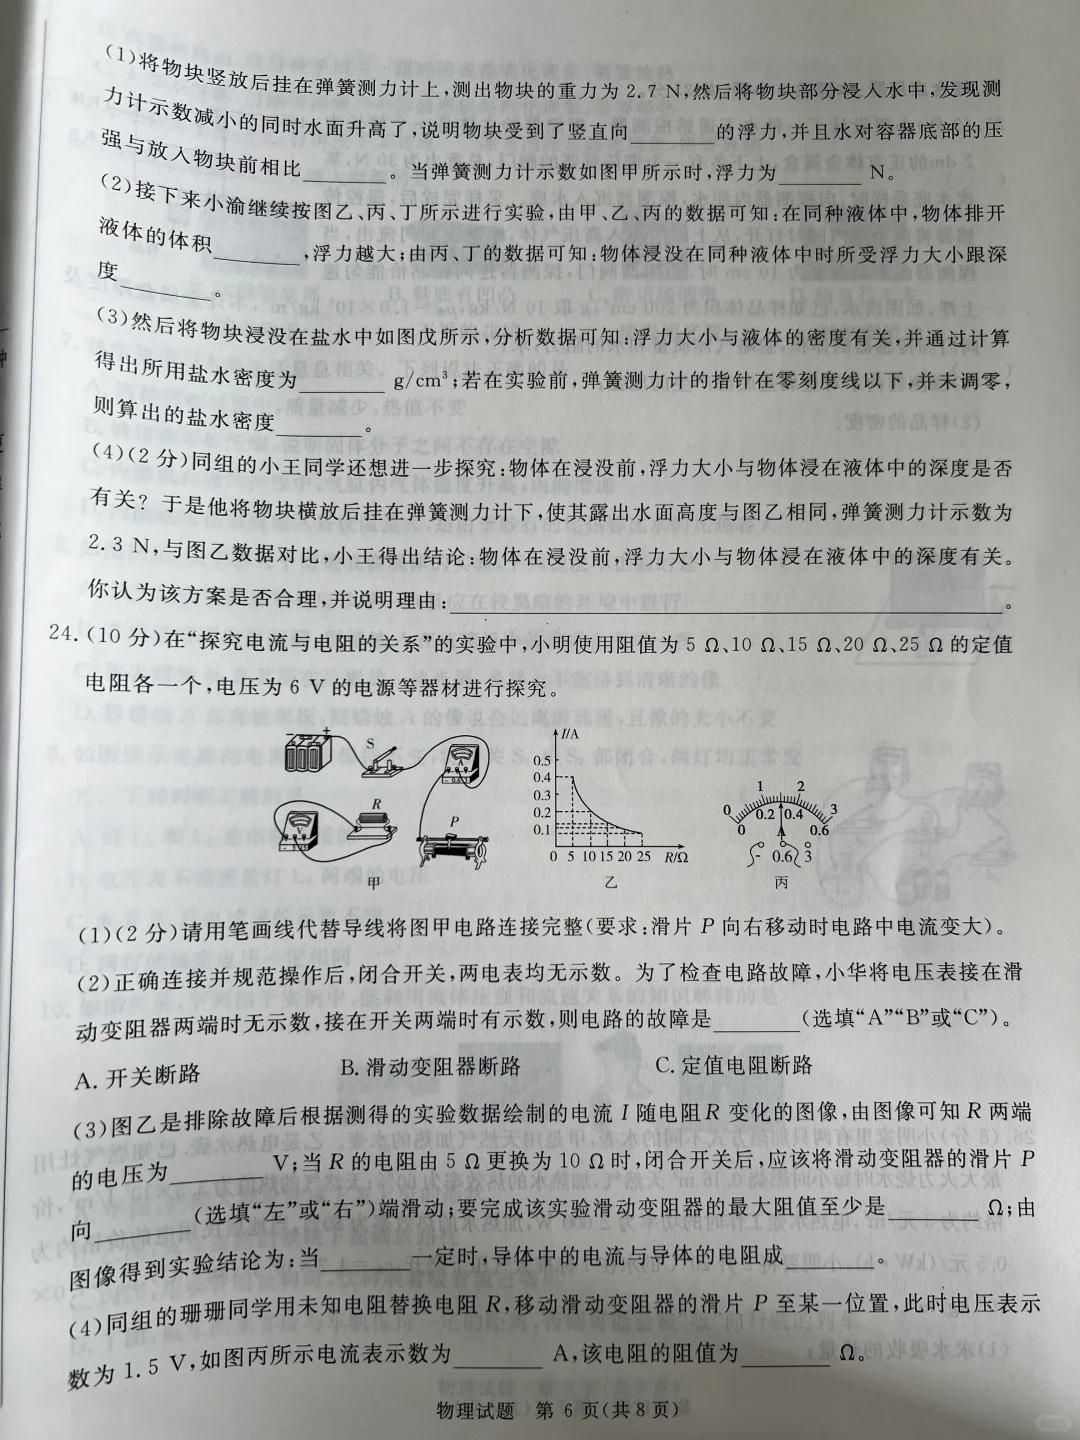 (1)将物块竖放后挂在弹簧测力计上,测出物块的重力为 2.7 N,然后将物块部分浸入水中,发现测
力计示数减小的同时水面升高了,说明物块受到了竖直向________的浮力,并且水对容器底部的压
强与放入物块前相比________。当弹簧测力计示数如图甲所示时,浮力为________ N。
(2)接下来小渝继续按图乙、丙、丁所示进行实验,由甲、乙、丙的数据可知:在同种液体中,物体排开
液体的体积________,浮力越大;由丙、丁的数据可知:物体浸没在同种液体中时所受浮力大小跟深
度________。
(3)然后将物块浸没在盐水中如图戊所示,分析数据可知:浮力大小与液体的密度有关,并通过计算
得出所用盐水密度为________ g/cm³;若在实验前,弹簧测力计的指针在零刻度线以下,并未调零,
则算出的盐水密度________。
(4)(2 分)同组的小王同学还想进一步探究:物体在浸没前,浮力大小与物体浸在液体中的深度是否
有关?于是他将物块横放后挂在弹簧测力计下,使其露出水面高度与图乙相同,弹簧测力计示数为
2.3 N,与图乙数据对比,小王得出结论:物体在浸没前,浮力大小与物体浸在液体中的深度有关。
你认为该方案是否合理,并说明理由:________。
24.(10 分)在“探究电流与电阻的关系”的实验中,小明使用阻值为 5 Ω、10 Ω、15 Ω、20 Ω、25 Ω 的定值
电阻各一个,电压为 6 V 的电源等器材进行探究。
- +
S
A
- 0.6 3
R
V
P
甲
I/A
0.5
0.4
0.3
0.2
0.1
0 5 10 15 20 25 R/Ω
乙
0 1 2 3
0 0.2 0.4 0.6
A
- 0.6 3
丙
(1)(2 分)请用笔画线代替导线将图甲电路连接完整(要求:滑片 P 向右移动时电路中电流变大)。
(2)正确连接并规范操作后,闭合开关,两电表均无示数。为了检查电路故障,小华将电压表接在滑
动变阻器两端时无示数,接在开关两端时有示数,则电路的故障是________(选填“A”“B”或“C”)。
A. 开关断路 B. 滑动变阻器断路 C. 定值电阻断路
(3)图乙是排除故障后根据测得的实验数据绘制的电流 I 随电阻 R 变化的图像,由图像可知 R 两端
的电压为________ V;当 R 的电阻由 5 Ω 更换为 10 Ω 时,闭合开关后,应该将滑动变阻器的滑片 P
向________(选填“左”或“右”)端滑动;要完成该实验滑动变阻器的最大阻值至少是________ Ω;由
图像得到实验结论为:当________一定时,导体中的电流与导体的电阻成________。
(4)同组的珊珊同学用未知电阻替换电阻 R,移动滑动变阻器的滑片 P 至某一位置,此时电压表示
数为 1.5 V,如图丙所示电流表示数为________ A,该电阻的阻值为________ Ω。
物理试题 第 6 页(共 8 页)